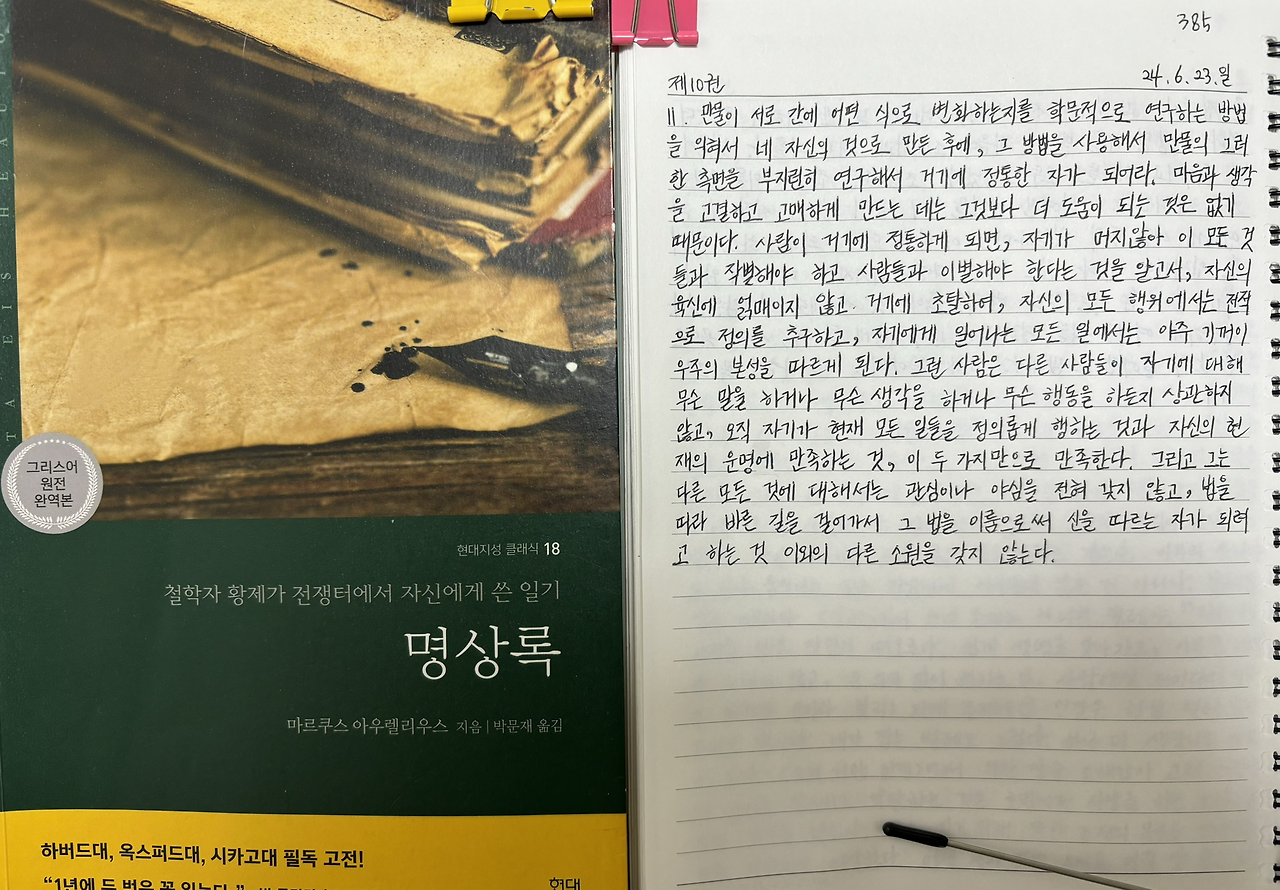 TA EIS HEAUTO
그리스어
원전
완역본
현대지성 클래식 18
철학자 황제가 전쟁터에서 자신에게 쓴 일기
명상록
마르쿠스 아우렐리우스 지음 | 박문재 옮김
하버드대, 옥스퍼드대, 시카고대 필독 고전!
“1년에 두 번은 꼭 읽는다.”
현대
385
제10권 24.6.23.일
11. 만물이 서로 간에 어떤 식으로 변화하는지를 학문적으로 연구하는 방법
을 익혀서 네 자신의 것으로 만든 후에, 그 방법을 사용해서 만물의 그러
한 측면을 부지런히 연구해서 거기에 정통한 자가 되어라. 마음과 생각
을 고결하고 고매하게 만드는 데는 그것보다 더 도움이 되는 것은 없기
때문이다. 사람이 거기에 정통하게 되면, 자기가 머지않아 이 모든 것
들과 작별해야 하고 사람들과 이별해야 한다는 것을 알고서, 자신의
육신에 얽매이지 않고 거기에 초탈하여, 자신의 모든 행위에서는 전적
으로 정의를 추구하고, 자기에게 일어나는 모든 일에서는 아주 기꺼이
우주의 본성을 따르게 된다. 그런 사람은 다른 사람들이 자기에 대해
무슨 말을 하거나 무슨 생각을 하거나 무슨 행동을 하든지 상관하지
않고, 오직 자기가 현재 모든 일들을 정의롭게 행하는 것과 자신의 현
재의 운명에 만족하는 것, 이 두 가지만으로 만족한다. 그리고 그는
다른 모든 것에 대해서는 관심이나 야심을 전혀 갖지 않고, 법을
따라 바른 길을 걸어가서 그 법을 이룸으로써 신을 따르는 자가 되려
고 하는 것 이외의 다른 소원을 갖지 않는다.